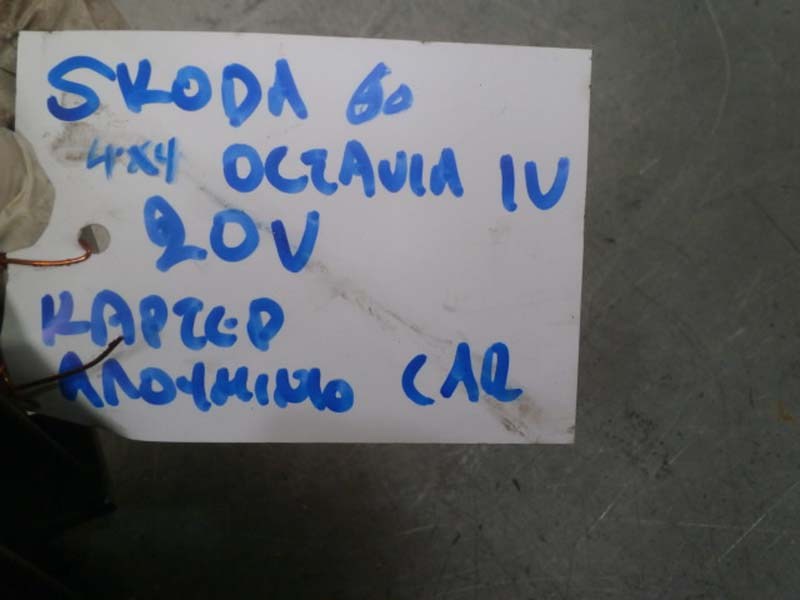 SKODA 60
4X4 OCTAVIA IV
20V
ΚΑΡΤΕΡ
ΑΛΟΥΜΙΝΙΟ CAR